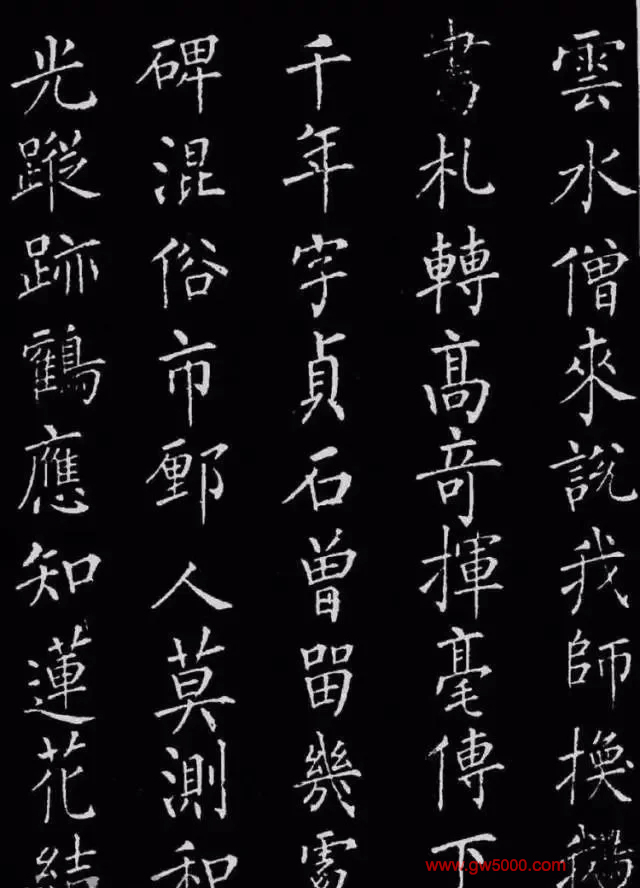 雲水僧來說我師換
書札轉高竒揮毫傳下
千年字貞石曾留幾
碑混俗市鄽人莫測和
光蹤跡鶴應知蓮花結
www.gw5000.com